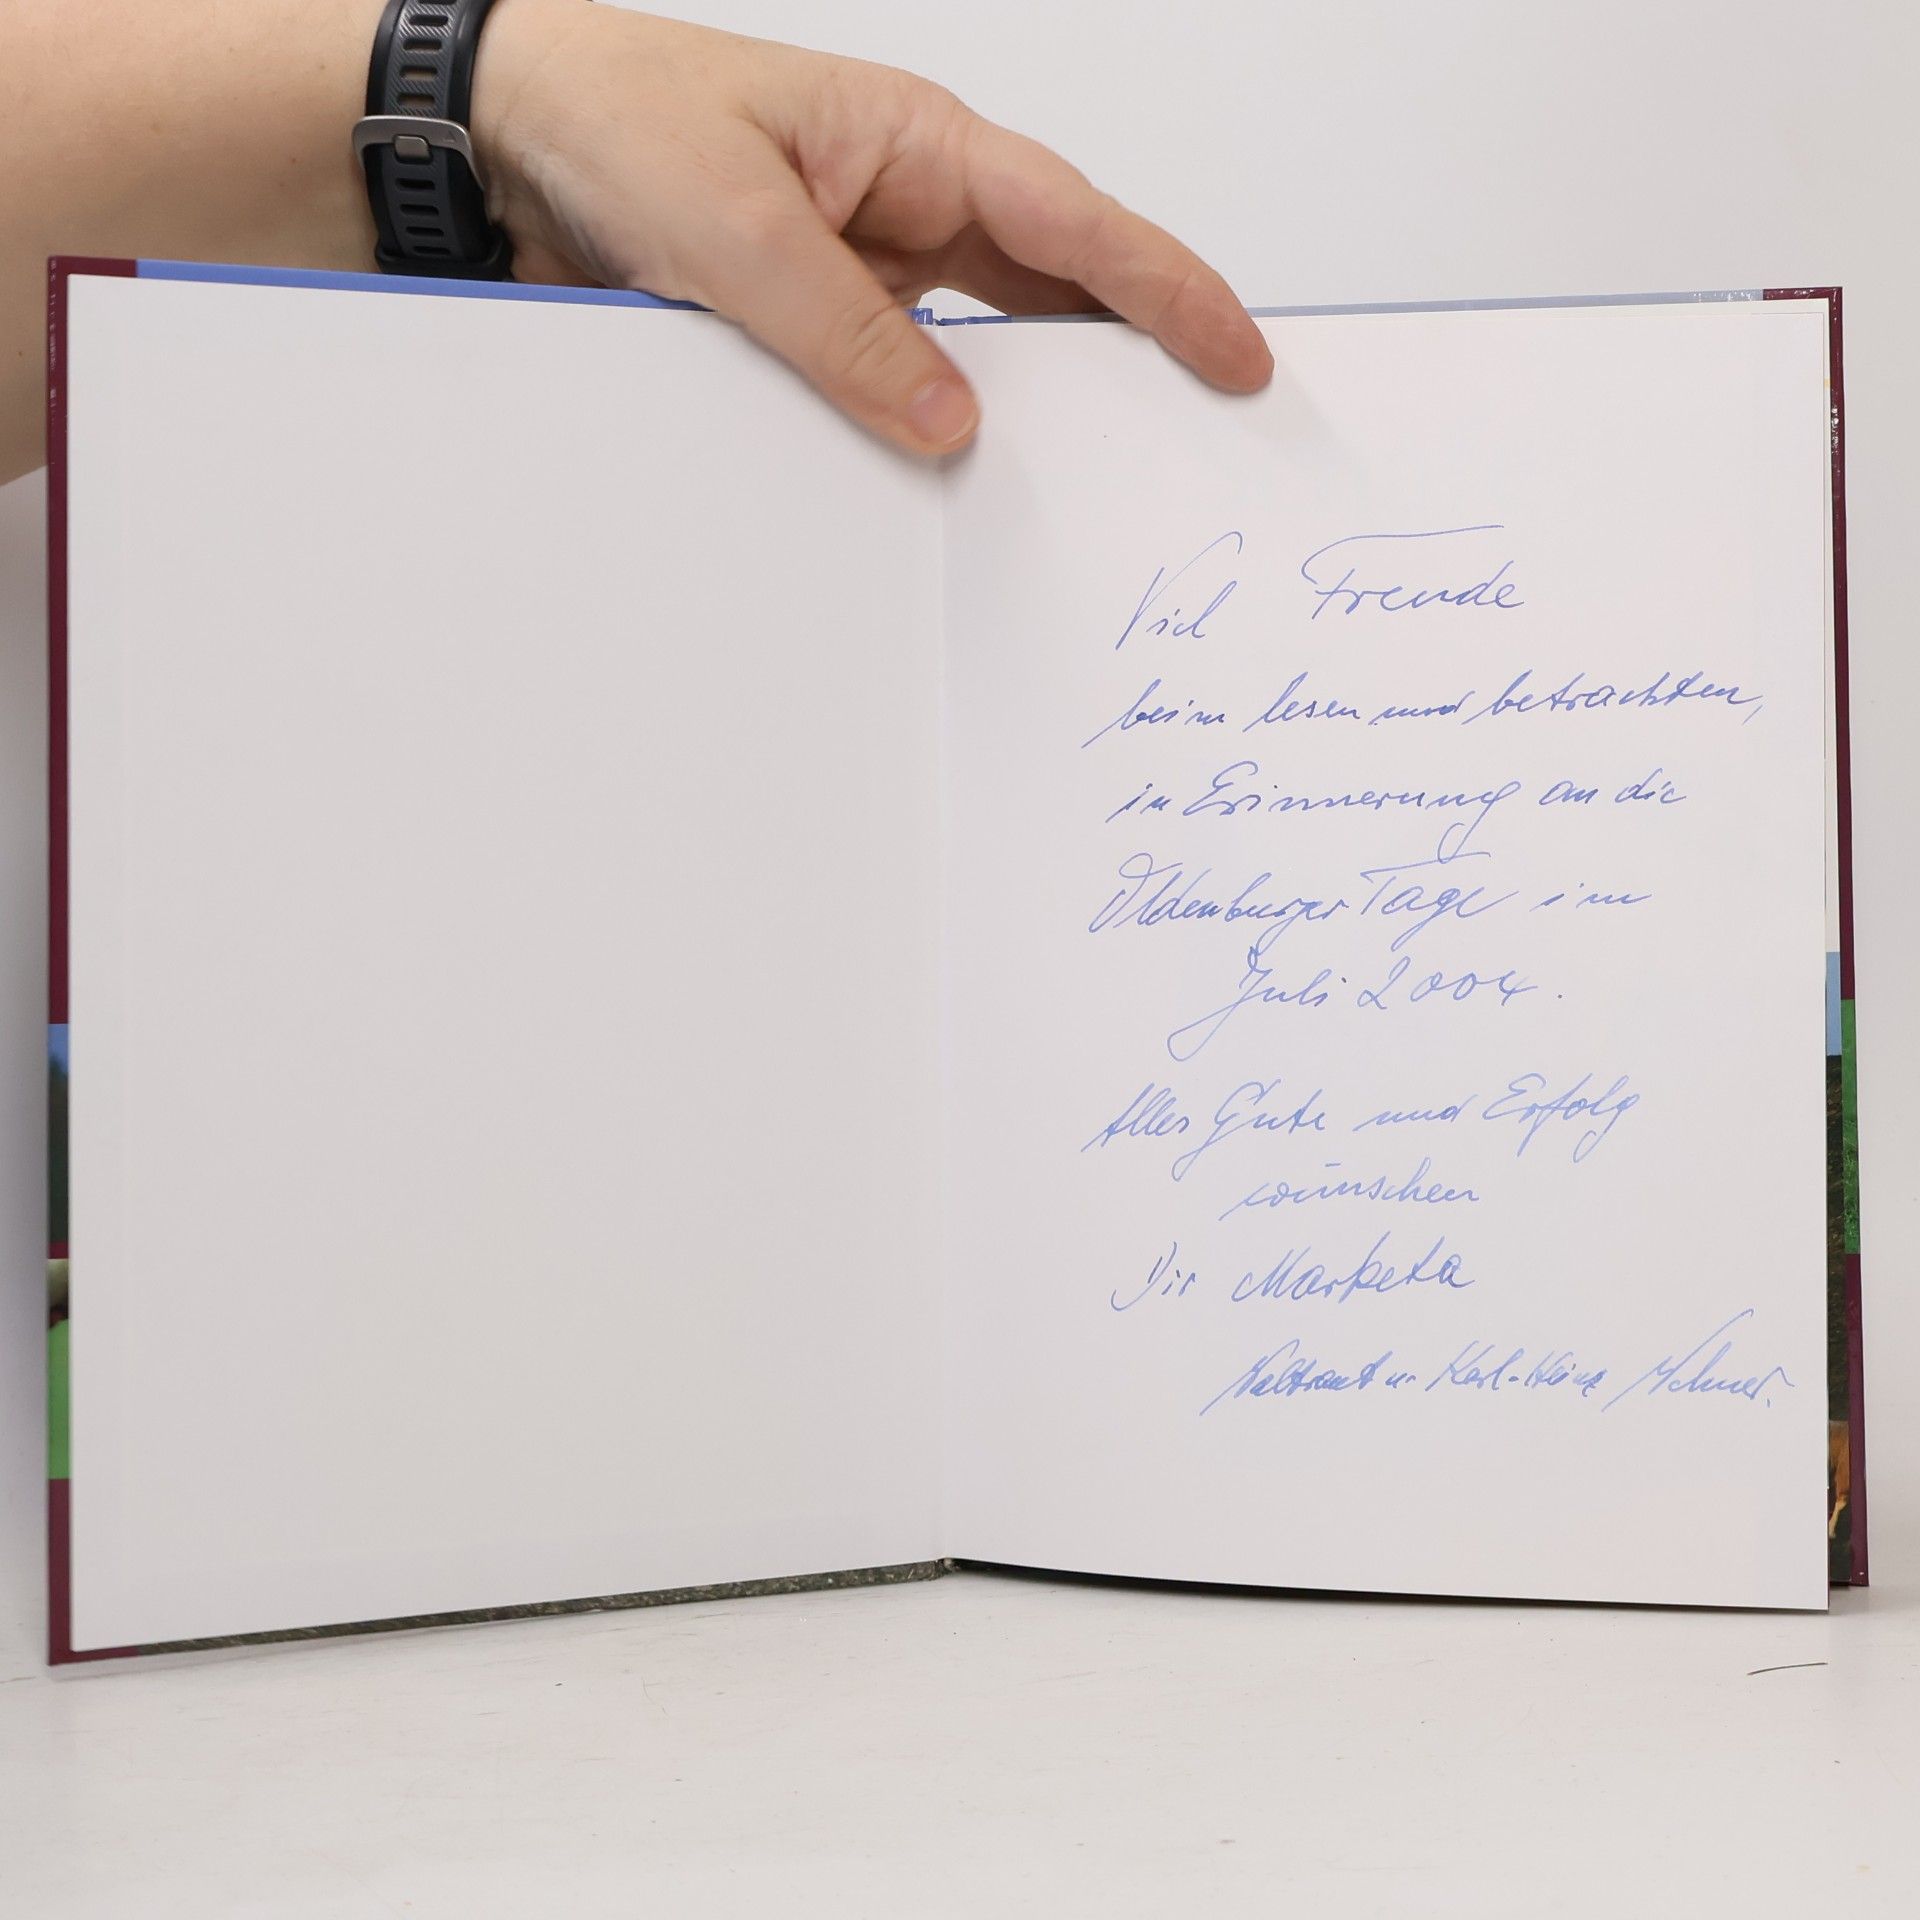 Viel Freude
beim lesen und betrachten,
in Erinnerung an die
Oldenburger Tage im
Juli 2004.
Alles Gute und Erfolg
wünschen
Dir Marketa
Waltraut u. Karl-Heinz